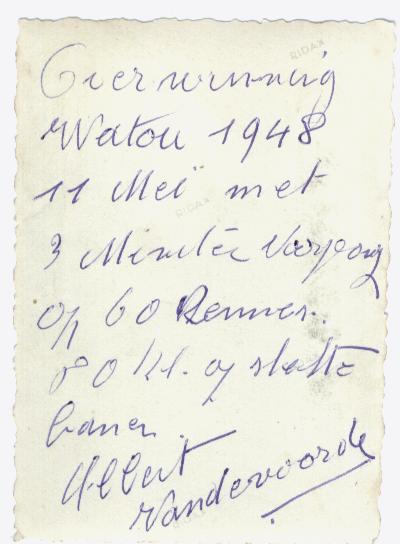 RIDAX
Overwinning
Watou 1948
11 Meï met
RIDAX
3 Minuten Voorsprong
op 60 Renners.
80 kl. op slechte
banen.
Albert
Vandevoorde